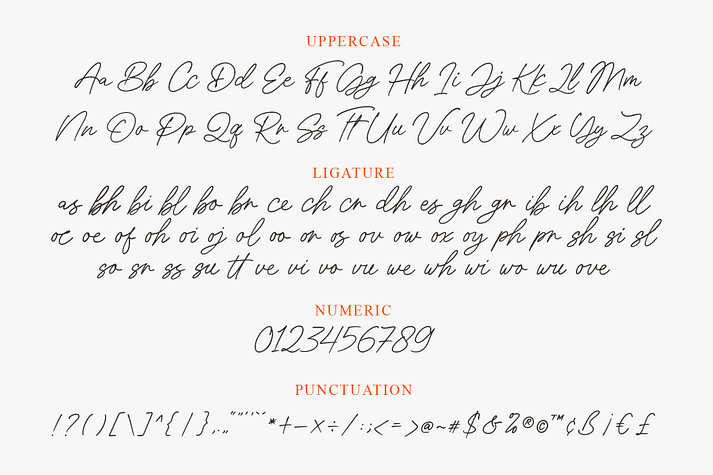 UPPERCASE
Aa Bb Cc Dd Ee Ff Gg Hh Ii Jj Kk Ll Mm
Nn Oo Pp Qq Rr Ss Tt Uu Vv Ww Xx Yy Zz
LIGATURE
as bh bi bl bo br ce ch cr dh es gh gr ib ih lh ll
oc oe of oh oi oj ol oo or os ov ow ox oy ph pr sh si sl
so sr ss su tt ve vi vo vu we wh wi wo wu ove
NUMERIC
0123456789
PUNCTUATION
!?()[\]^{/},.,,"“”‘’`´*+–×÷/:;<=>@~#$&%®©™¢ß¡€£